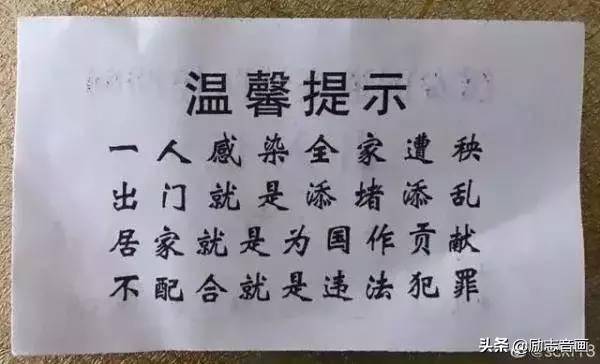 温馨提示
一人感染全家遭秧
出门就是添堵添乱
居家就是为国作贡献
不配合就是违法犯罪
头条 @励志音画